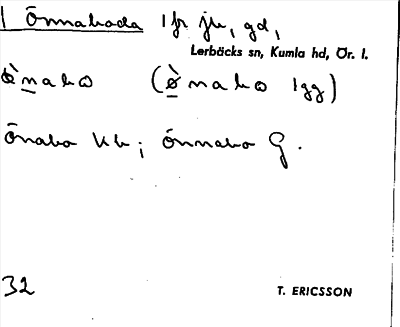 1 Önnaboda 1 fr jr, gd,
Lerbäcks sn, Kumla hd, Ör. l.
ònabo (ònabo 1gg)
Önabo Kb; Önnabo G.
32
T. ERICSSON